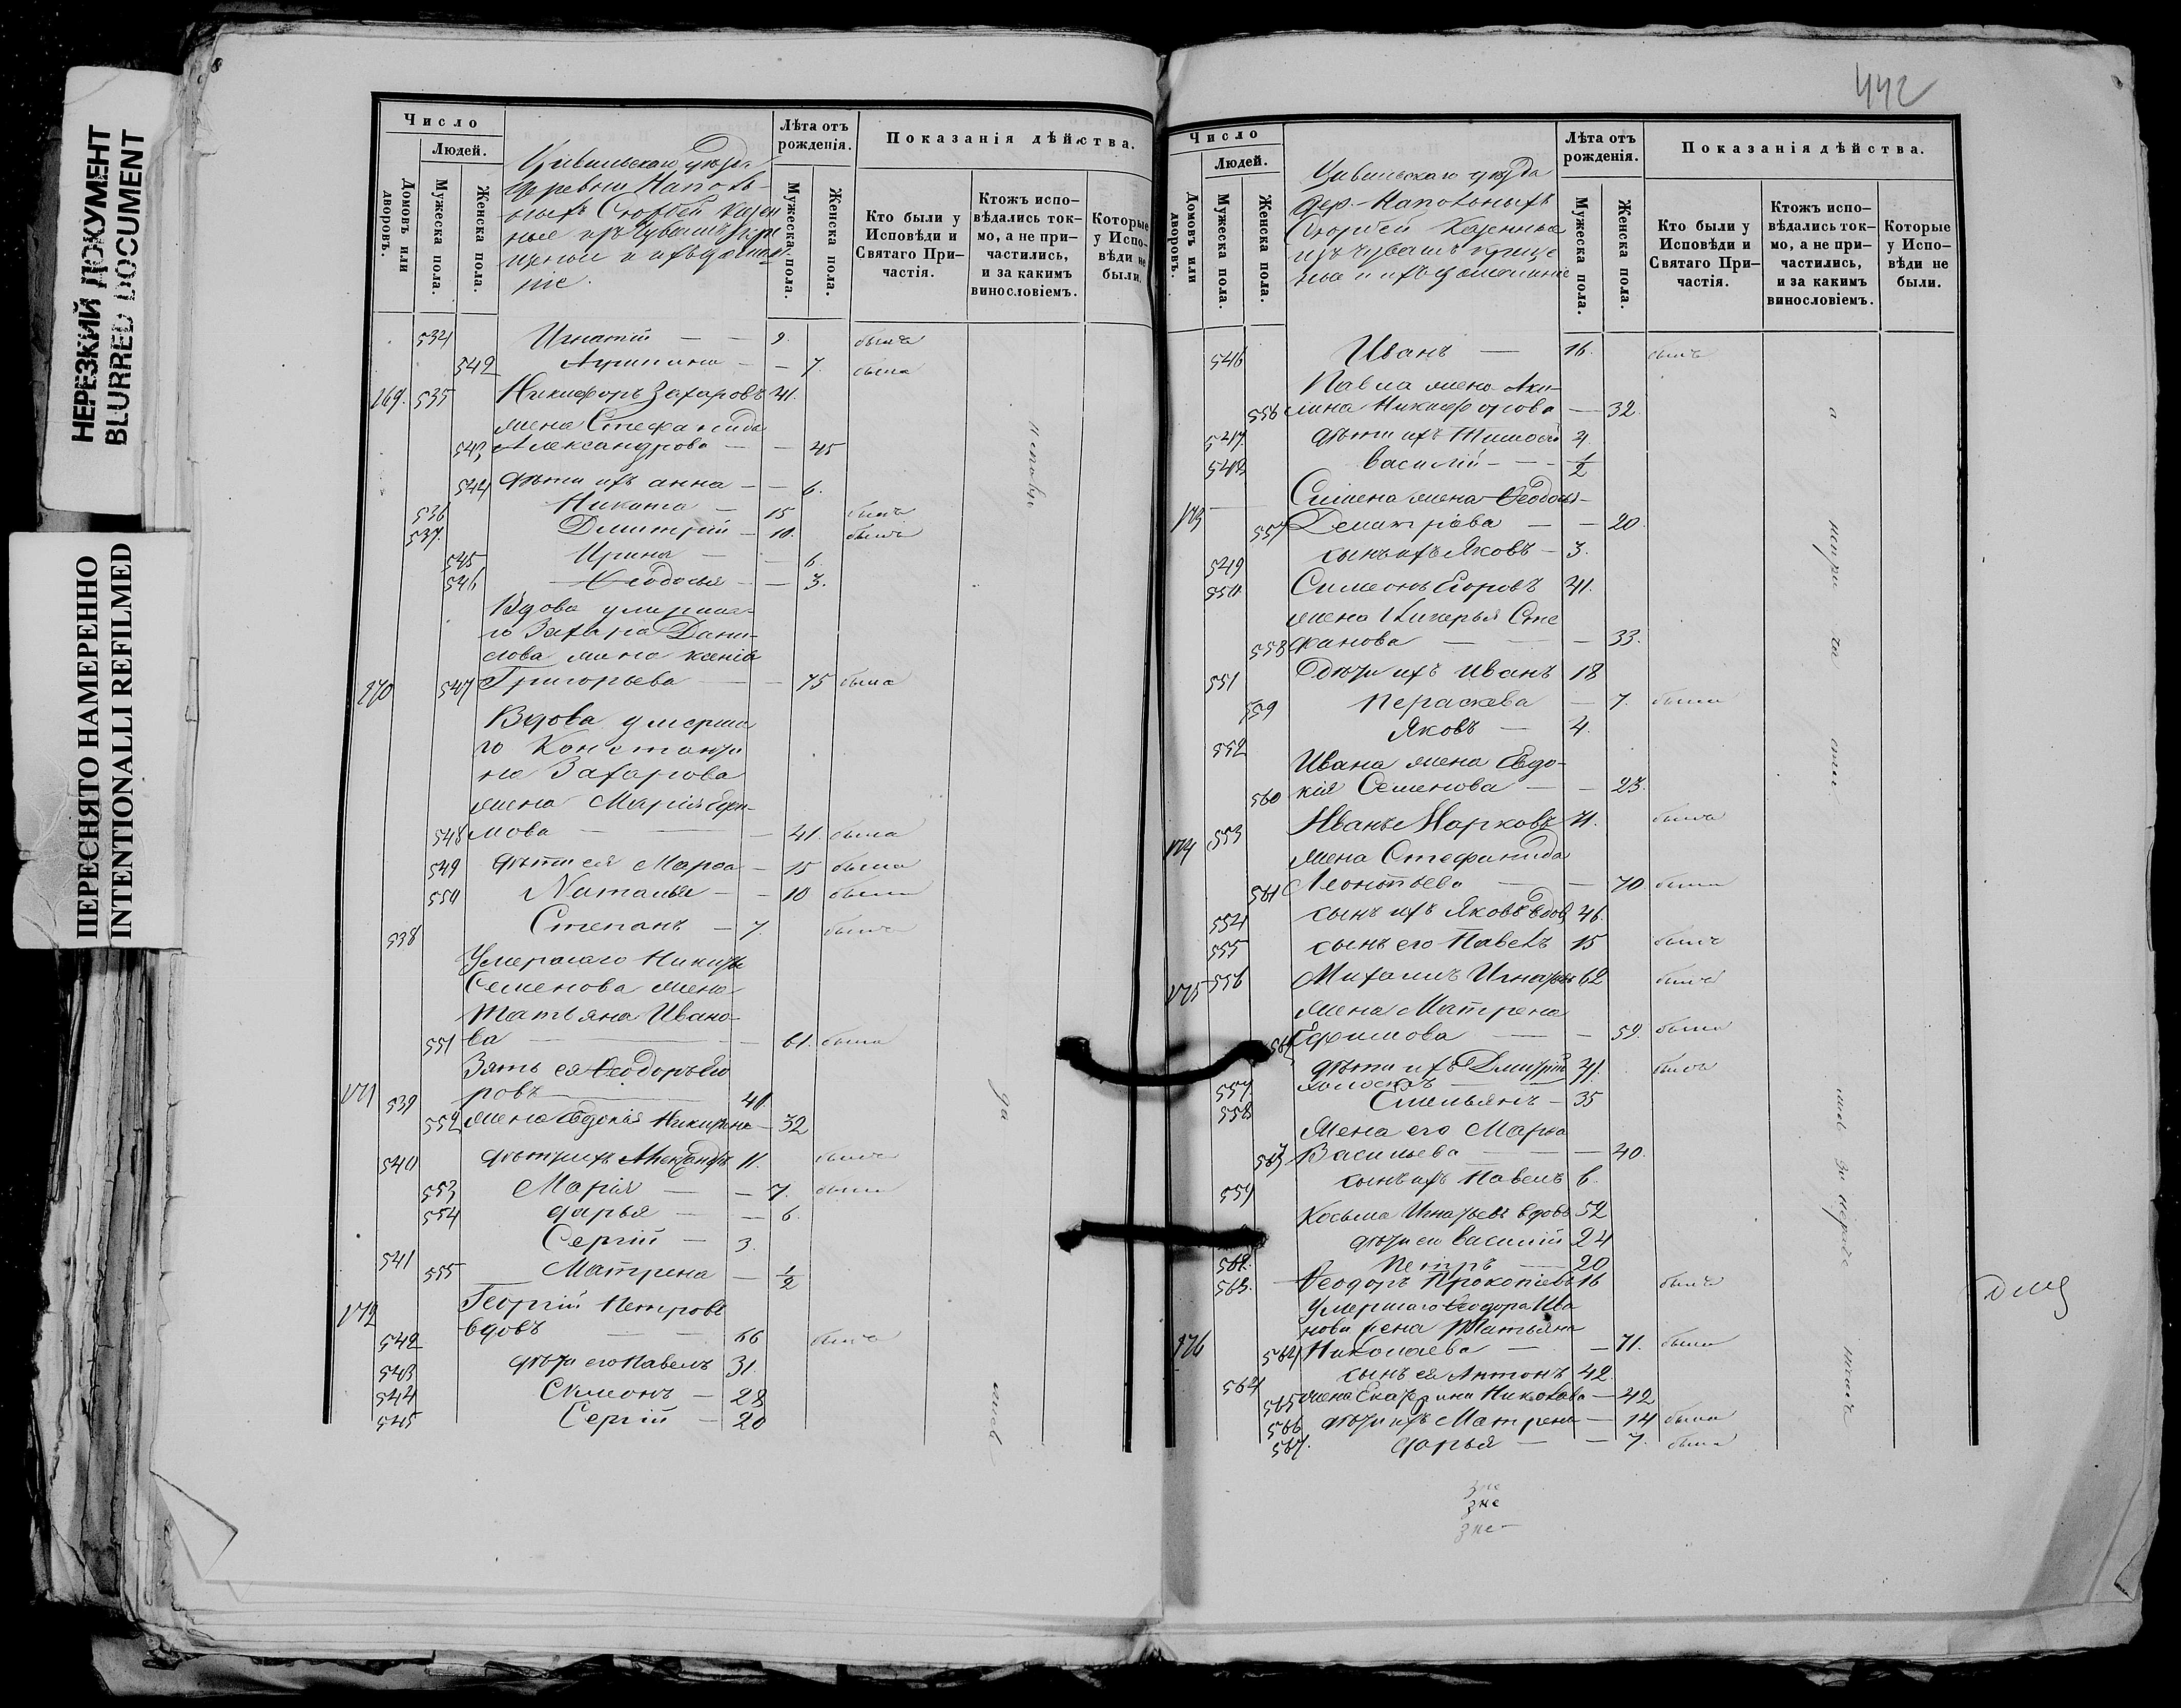 НЕРЕЗКИЙ ДОКУМЕНТ
BLURRED DOCUMENT
ПЕРЕСНЯТО НАМЕРЕННО
INTENTIONALLI REFILMED
Число
Людей.
Домовъ или дворовъ.
Мужеска пола.
Женска пола.
Цивильскаго уѣзда
деревни Наполь-
ныхъ Сюрбей казен
ные изъ чувашъ кре
щеные и ихъ домаш
ніе.
Лѣта отъ рожденія.
Мужеска пола.
Женска пола.
Показанія дѣйства.
Кто были у Исповѣди и Святаго При-частія.
Ктожъ испо-вѣдались ток-мо, а не при-частились, и за какимъ винословіемъ.
Которые у Испо-вѣди не были.
534 Игнатій — — 9. былъ
542 Агрипина — — 7. была
169. 535 Никифоръ Захаровъ 41.
жена Стефанида
543 Александрова — — 45
544 дѣти ихъ анна — — 6.
536 Никита — 15 былъ
537 Димитрій — 10. былъ
545 Ирина — — 6.
546 Ѳеодосья — — 3.
Вдова умерша-
го Захара Дани-
лова жена ксенія
170 547 Григорьева — — 75 была
Вдова умерша
го Константи
на Захарова
жена Марія Ефи-
548 мова — — — 41. была
549 дѣти ея Марѳа — 15 была
550 Наталья — — 10 была
538 Степанъ — 7 былъ
Умершаго Никиты
Семенова жена
Татьяна Ивано-
551 ва — — — 61. была
Зять ея Ѳеодоръ Его
171 539 ровъ — 40.
552 жена Евдокія Никитина — 32
540 дѣти ихъ Александръ 11. былъ
553 Марія — — 7. была
554 дарья — — 6.
541 Сергій — 3.
555 Матрена — 1/2
Георгій Петровъ
172 542 вдовъ — — 66 былъ
543 дѣти его Павелъ 31.
544 Симеонъ — 28
545 Сергій — 20
исповѣ
да
лись
442
Число
Людей.
Домовъ или дворовъ.
Мужеска пола.
Женска пола.
Цивильскаго уѣзда
дер. Напольныхъ
Сюрбей казенные
изъ чувашъ креще
ные и ихъ домашніе
Лѣта отъ рожденія.
Мужеска пола.
Женска пола.
Показанія дѣйства.
Кто были у Исповѣди и Святаго При-частія.
Ктожъ испо-вѣдались ток-мо, а не при-частились, и за какимъ винословіемъ.
Которые у Испо-вѣди не были.
546 Иванъ — 16. былъ
Павла жена Аки-
556 лина Никифорова — 32.
547. дѣти ихъ Тимоѳей 4.
548 Василій — — 1/2
Симена жена Ѳеодосья
173 557 Демитріева — — 20.
549 сынъ ихъ Яковъ — 3.
550 Симеонъ Егоровъ 41.
жена Гликерья Сте
558 фанова — — — 33.
551 дѣти ихъ Иванъ 18
559 Параскева — 7. была
552 Яковъ — 4.
Ивана жена Евдо-
560 кія Семенова — — 23.
174 553 Иванъ Марковъ 71. былъ
жена Стефанида
561 Леонтьева — — 70 была
554 сынъ ихъ Яковъ вдов 46.
555 сынъ его Павелъ 15 былъ
175 556 Михаилъ Игнатьевъ 62 былъ
жена Матрена
562 Ефимова — — 59. была
557. дѣти ихъ Дмитрій 41. былъ
холостъ
558 Емельянъ — 35
Жена его Марѳа
563 Васильева — — 40.
559 сынъ ихъ Павелъ 6.
Косьма Игнатьевъ вдовъ 52
дѣти ея Василій 24
562. Петръ — 20
563. Ѳеодоръ Прокопіевъ 16 былъ
Умершаго Ѳеодора Ива
нова жена Татьяна
176 564 Николаева — — 71. была
564 сынъ ея Антонъ 42.
565 жена Екатерина Николаева — 42
566 дѣти ихъ Матрена — 14 была
567. дарья — — 7. была
а
непри
ча
сти
лись
зне
зне
зне